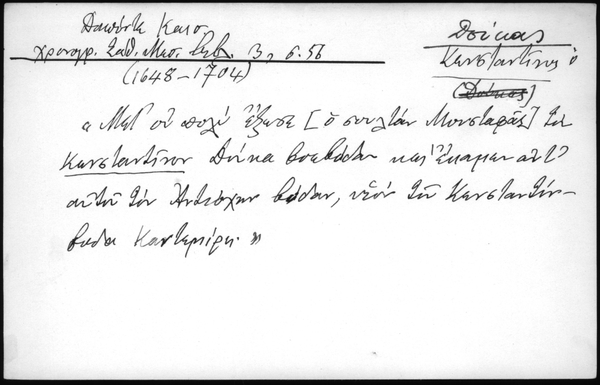 Δαπόντε Καισ
χρονογρ. Σαθ. Μεσ. Βιβ. 3, σ. 56
(1648-1704)
Δούκας
Κωνσταντίνος ὁ
(Δούκας)
« Μετ' οὐ πολύ ἔξωσε [ὁ σουλτάν Μουσταφᾶς] τὸν
Κωνσταντῖνον Δούκα βοεβόδαν καὶ ἔκαμεν ἀντ'
αὐτοῦ τὸν Ἀντίοχον βόδαν, υἱὸν τοῦ Κωνσταντίν-
βοδα Καντεμίρη. »